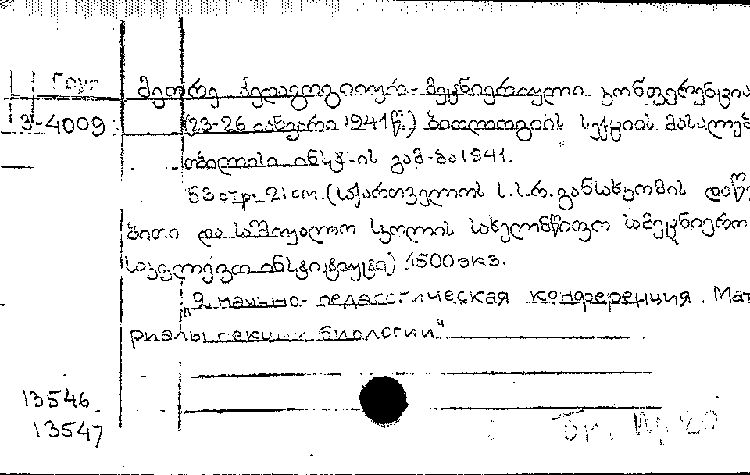 Груз მეორე პედაგოგიურ-მეცნიერული კონფერენცია
3-4009 (23-26 იანვარი 1941წ.) ბიოლოგიის სექციის მასალებ
თბილისი ინსტ-ის გამ-ბა 1941.
53 стр. 21 cm. (საქართველოს ს.ს.რ. განსახკომის დაწყ
ბითი და საშუალო სკოლის სახელმწიფო სამეცნიერო
საკვლევი ინსტიტუტი) 1500 экз.
"2 научно-педагогическая конференция. Мат
риалы секции биологии"
13546
13547